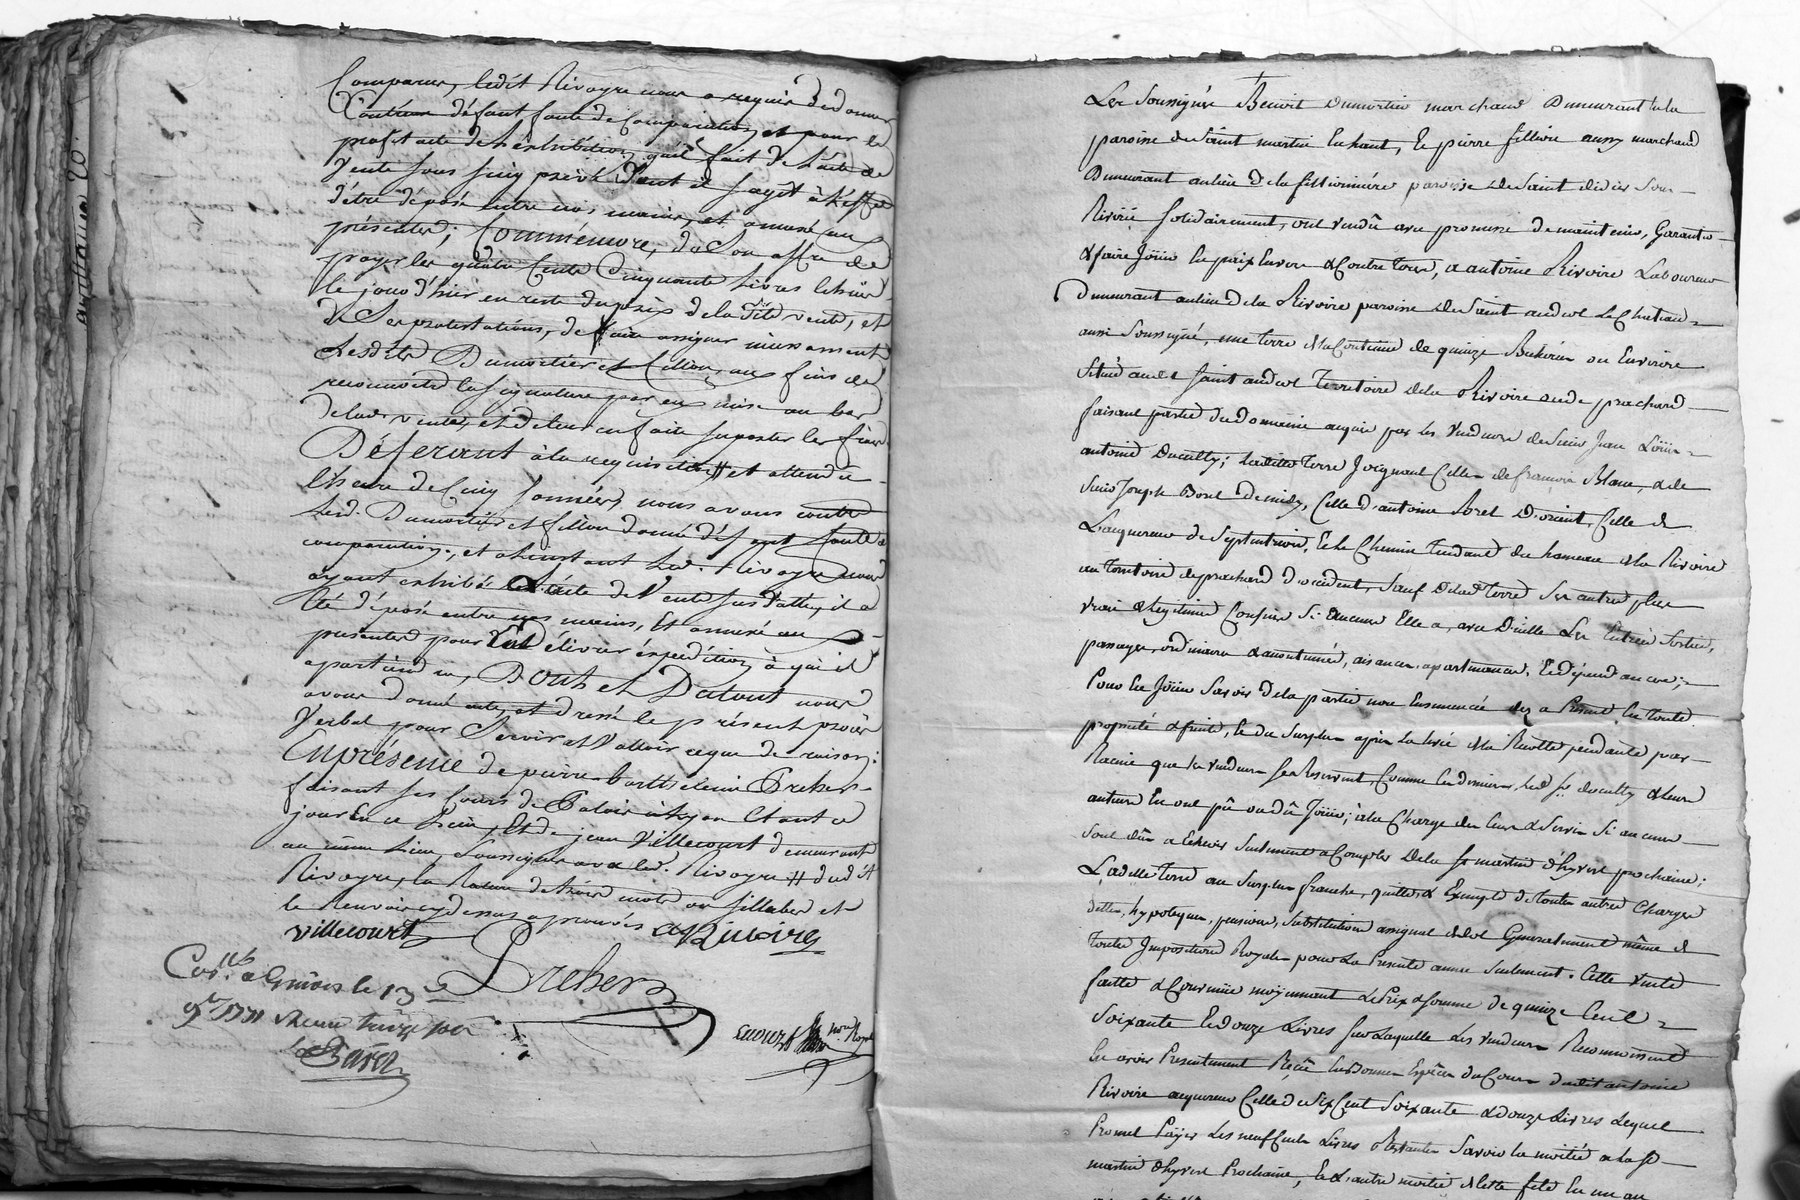 Comparus, ledit Rivoyre nous a requis de donner
Contr'eux défaut faute de Comparution, et pour le
profit acte de l'exhibition qu'il fait de l'acte de
Vente sous seing privé dont il s'agit à l'effet
d'être déposé entre nos mains, et annexé au
présentes; Comm'encore, de Son offre de
payer les quatre Cents Cinquante livres échus
le jour d'hier en reste du prix de la dite vente, et
de Ses protestations, de faire assigner incessament
lesdits Dumortier et fillion, aux fins de
reconnoitre la signature par eux mise au bas
de lad. vente, et de leur en faire suporter les frais
Déferant à la requisition # et attendu
l'heure de Cinq sonnées, nous avons contre
lesd. Dumortier et fillion donné défaut faute de
comparution, et a l'instant led. Rivoyre nous
ayant exhibé l'acte de Vente sus datté, il a
été déposé entre nos mains, Et annexé au
présentes pour En délivrer éxpédition à qui il
apartiendra, Dont et Dutout nous
avons donné acte, et dressé le présent procès
Verbal pour Servir et Valloir ce que de raison;
En présence de pierre barthelemi Preher
faisant ses Cours de Palais à Lyon Etant ce
jour En ce Lieu, Et de jean Villecourt demeurant
au même Lieu, Soussignés avec led. Rivoyre # dudit
Rivoyre, la Rature de trois mots ou sillabes et
le Renvoi cy dessus aprouvés a Rivoire
villecourt
Preher
Con.lé a le 13
9bre 1771 Receu treize sols
Baroz
not. Royal
Les Soussignés Benoit Dumortier marchand Demeurant en la
paroisse de Saint martin En haut, Et pierre fillion aussy marchand
Demeurant au lieu de la fillionnière paroisse de Saint didier Sou
Riviere Solidairement, ont vendû avec promesse de maintenir, Garantir
& faire Joüir En paix Envers & Contre tous, a antoine Rivoire Laboureur
Demeurant au lieu de la Rivoire paroisse de Saint andeol Le Chateau
aussi Soussigné, une terre de la Contenue de quinze Bicherées ou Environ
Située aud.t Saint andeol Territoire de la Rivoire ou de prachard
faisant partie du domaine acquis par les Vendeurs de Sieur Jean Loüis
antoine Ducully; Laditte terre Joignant Celle de francois Blanc, & de
Sieur Joseph Borel De midy, Celle d'antoine Borel D'orient, Celle de
L'acquereur de Septentrion, Et le Chemin Tendant du hameau de la Rivoire
au Territoire de prachard d'occident, Sauf de lad.e Terre Ses autres plus
vrais & legitimes Confins Si Aucuns Elle a, avec D'icelle Ses Entrées Sorties,
passages, ordinaires & accoutumés, aisances, apartenances, Et dépendances;
Pour En Joüir Savoir de la partie non Ensemencée dez a Présent En toute
propriété & fruits, Et du Surplus après La levée de la Recolte pendante par
Racine que les Vendeurs Se Réservent, Comme Eux derniers, led Sr ducully & leurs
auteurs En ont pû ou dû Joüir; a la Charge des Cens & Servis Si aucuns
Sont dûs a Echeoir Seulement a Compter De la St martin d'hyver prochaine;
Laditte Terre au Surplus franche, quitte, & Exempte de toutes autres Charges
dettes, hypoteques, pensions, Substitutions assignat de dot Generalement même de
toutes Impositions Royales pour La Présente année Seulement. Cette Vente
faitte & Convenüe moyennant Le Prix & Somme de quinze Cent
Soixante Et douze Livres Sur Laquelle Les Vendeurs Reconnoissent
En avoir Présentement Reçû En Bonnes Espèces du Cours dudit antoine
Rivoire acquereur Celle de Six Cent Soixante & douze Livres Lequel
Promet Payer Les neuf Cents Livres Restantes Savoir la moitié a la St
martin d'hyver Prochaine, Et L'autre moitié à Cette fête En un an